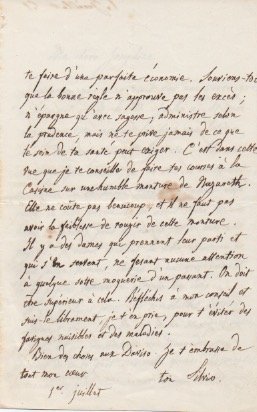 te faire d'une parfaite économie. Souviens-toi
que la bonne règle n'approuve pas les excès ;
n'épargne qu'avec sagesse, administre selon
la prudence, mais ne te prive jamais de ce que
le soin de ta santé peut exiger. C'est dans cette
vue que je te conseille de faire tes courses à la
sur une humble monture de Nazareth.
Elle ne coûte pas beaucoup, et il ne faut pas
avoir la faiblesse de rougir de cette monture.
Il y a des dames qui prennent leur parti et
qui s'en servent, ne fesant aucune attention
à quelque sotte moquerie d'un passant. On doit
être supérieur à cela. Réfléchis à mon conseil et
suis-le librement, je t'en prie, pour t'éviter des
fatigues nuisibles et des maladies.
Bien des choses aux je t'embrasse de
tout mon cœur
ton Silvio.
1er juillet